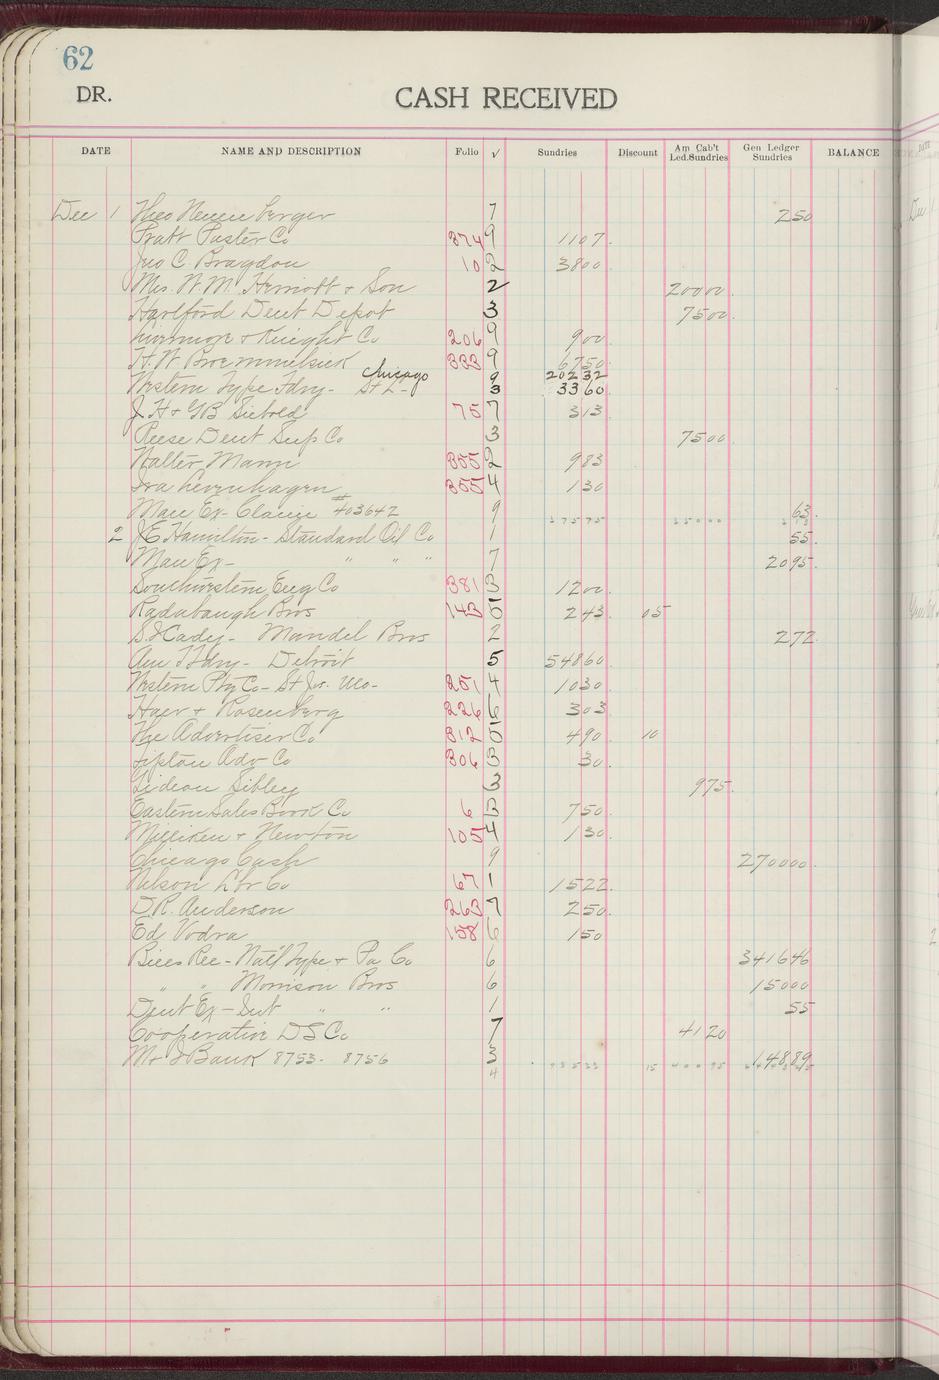 62
DR. CASH RECEIVED
DATE NAME AND DESCRIPTION Folio √ Sundries Discount Am Cab't Led. Sundries Gen Ledger Sundries BALANCE
Dec 1 Theo 7 250
Pratt Paster Co 374 9 1107
Jno C. Bragdon 10 2 3800
Mrs. W.M. & Son 2 20000
Hartford Dent Depot 3 7500
& Knight Co 206 9 900
H.W. 333 9 6750
Chicago 9 20232
Western Type Fdry - St L - 3 3360
J H & GB Siebold 75 7 313
Reese Dent Sup Co 3 7500
Walter Mann 355 2 983
Ira 355 4 130
Man Ex - Claim #03642 9 63
2 J E Hamilton - Standard Oil Co 1 55
Man Ex - " " " 7 2095
Southwestern Eng Co 381 3 1200
Radabaugh Bros 143 5 243 05
Cady - Mandel Bros 2 272
Am T Fdry - Detroit 5 54860
Western Ptg Co - St Jo. Mo - 251 4 1030
& Rosenberg 226 6 303
The Advertiser Co 312 5 490 10
Tipton Adv Co 306 3 30
Gideon Sibley 3 975
Eastern Sales Book Co 6 3 750
Milliken & Newton 105 4 130
Chicago Cash 9 270000
Nelson L'br Co 67 1 1522
D.R. Anderson 263 7 250
Ed Vodra 158 6 150
Bills Rec - Nat'l Type & Pa Co 6 341646
" " Morrison Bros 6 15000
Dent Ex - " " 1 55
Cooperative D S Co 7 4120
Bank 8753 - 8756 3 14889
4